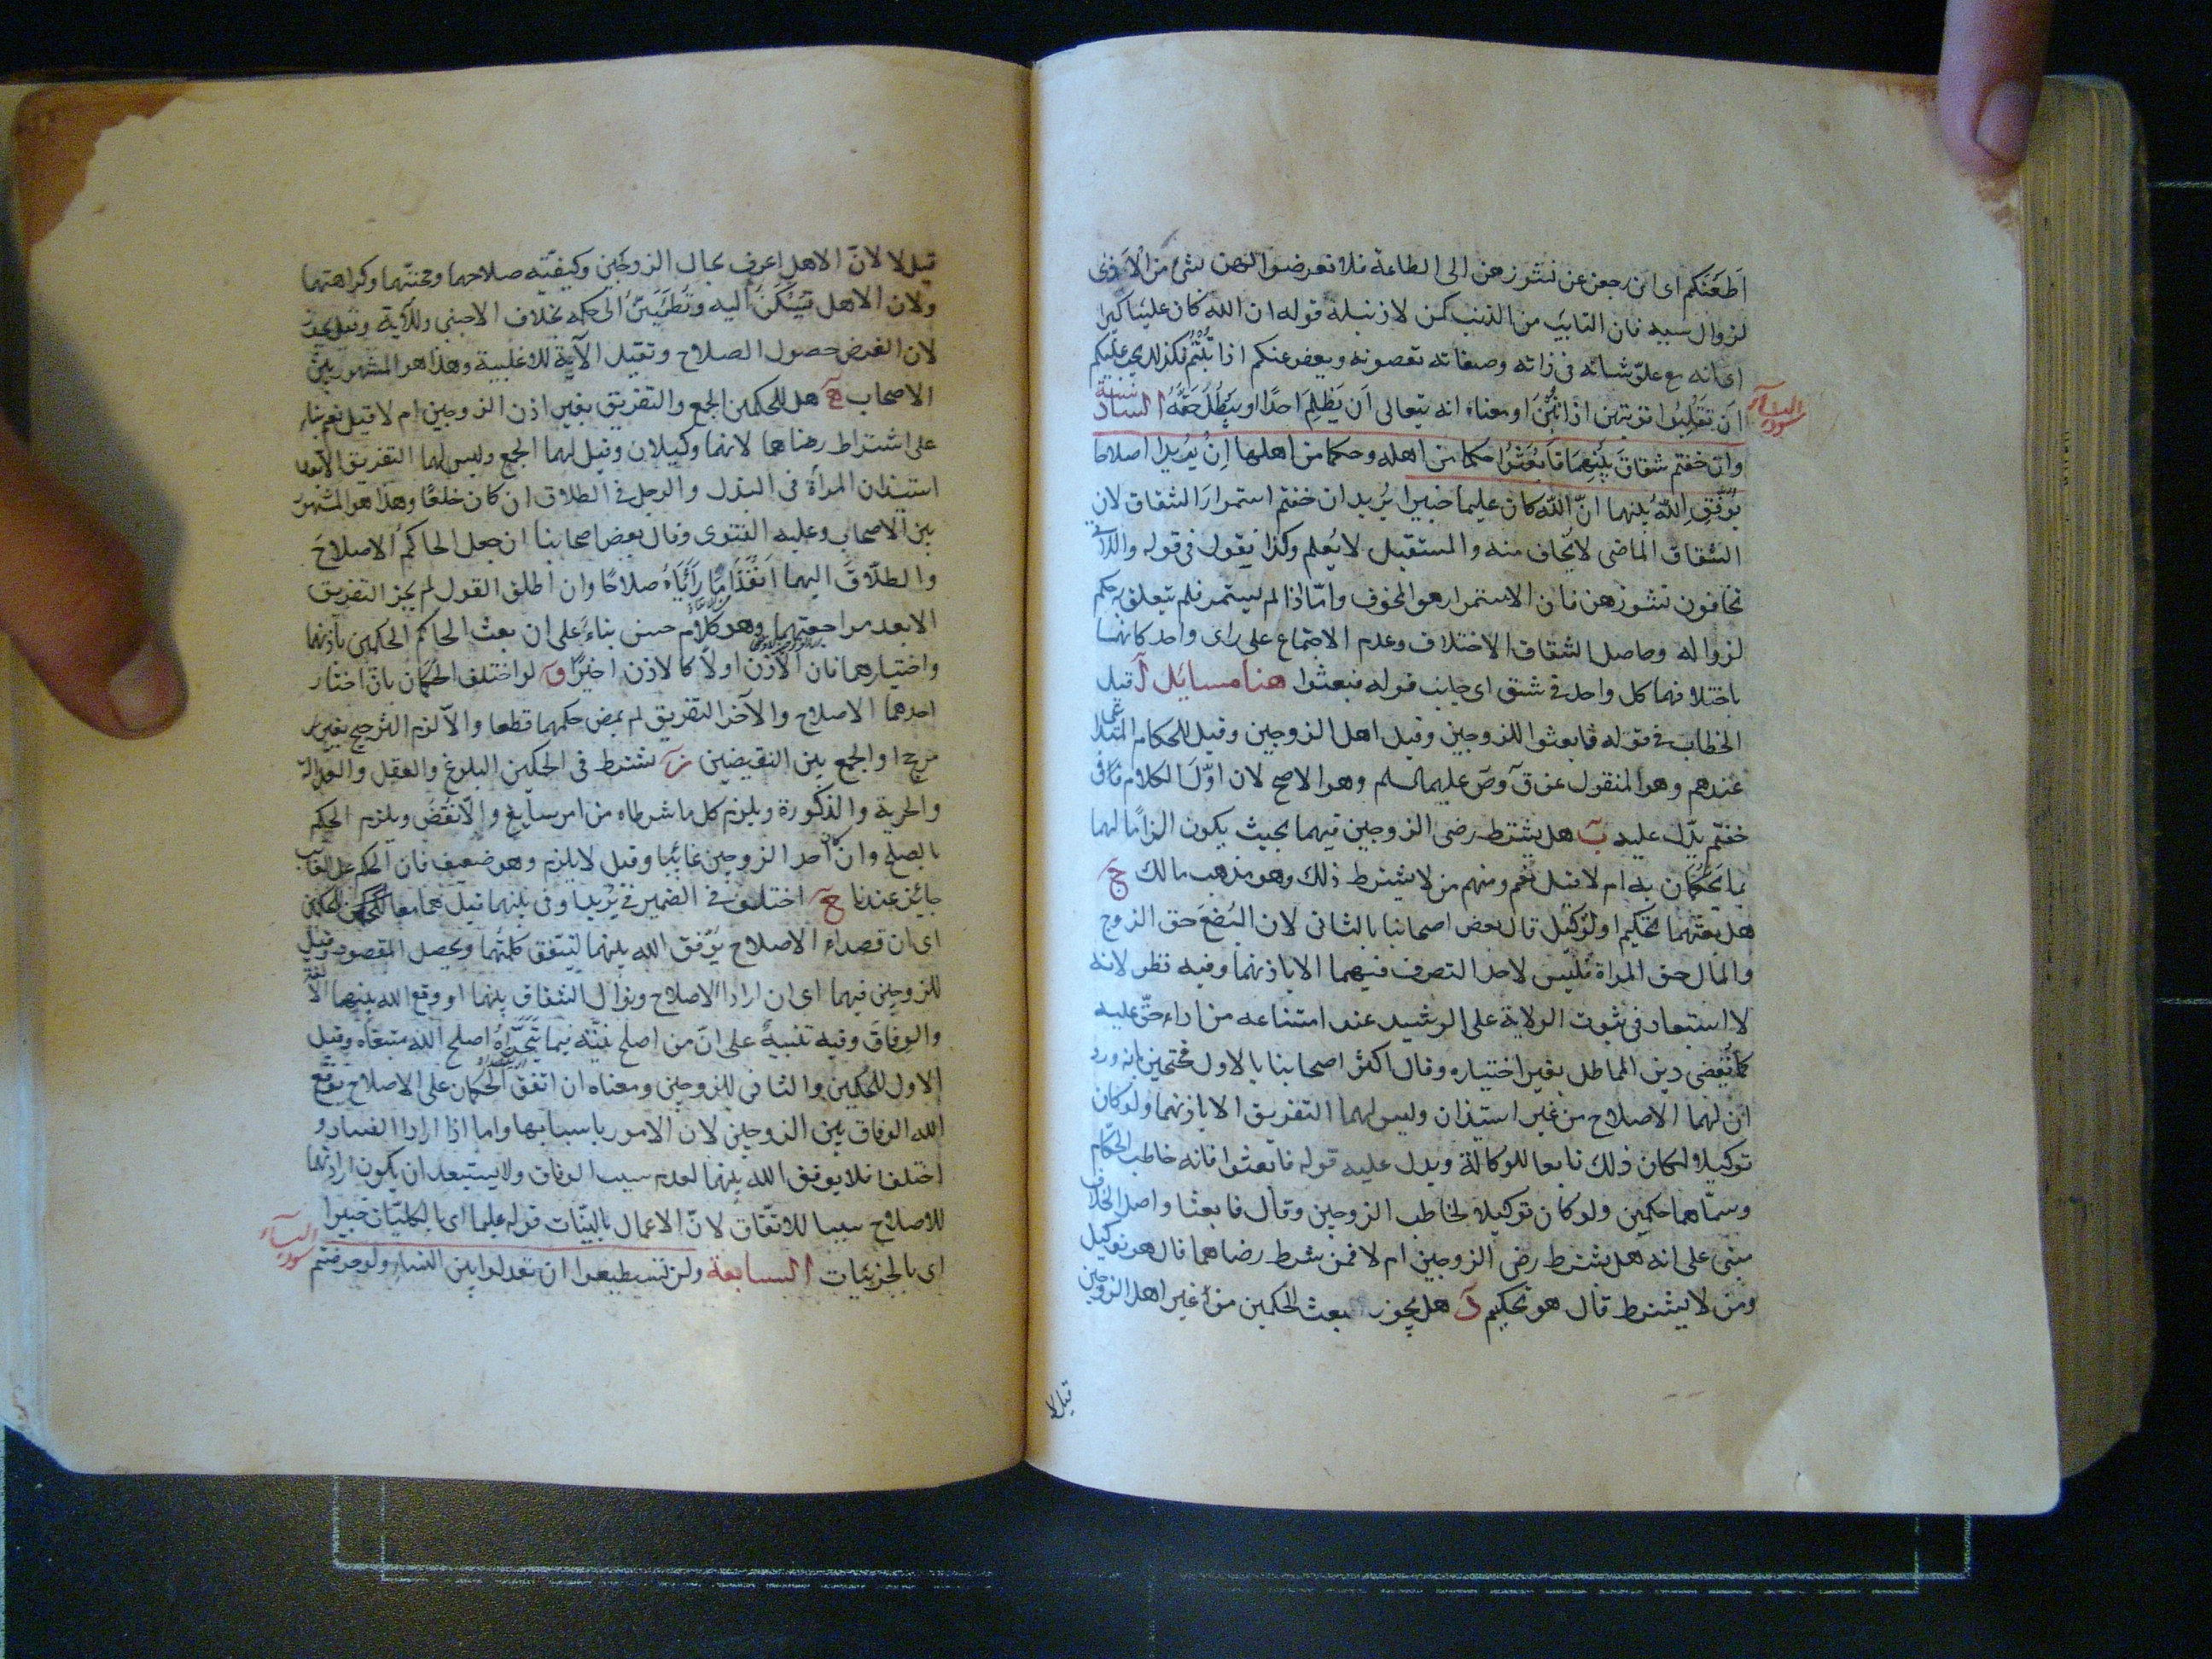 اطعنكم اى ان رجعن عن نشوزهن الى الطاعة فلا تعرضوا لهن بشئ من الاذى
لزوال سببه فان التايب من الذنب كمن لا ذنب له قوله ان الله كان عليا كبيرا
اى انه مع علو شانه فى ذاته وصفاته تعصونه ويعفو عنكم اذا تبتم فكذلك يجب عليكم
ان تقبلوا توبتهن اذا تبن او معناه انه يتعالى ان يظلم احدا او يبطل حقه السادسة
سورة النساء
وان خفتم شقاق بينهما فابعثوا حكما من اهله وحكما من اهلها ان يريدا اصلاحا
يوفق الله بينهما ان الله كان عليما خبيرا يريد ان خفتم استمرار الشقاق لان
الشقاق الماضى لا يخاف منه والمستقبل لا يعلم وكذا يقول فى قوله واللاتى
تخافون نشوزهن فان الاستمرار هو المخوف واما اذا لم يستمر فلم يتعلق به حكم
لزواله وحاصل الشقاق الاختلاف وعدم الاجتماع على راى واحد كانهما
باختلافهما كل واحد فى شق اى جانب قوله فبعثوا هنا مسايل آ قيل
الخطاب فى قوله فابعثوا للزوجين وقيل اهل الزوجين وقيل للحكام المتداعى
عندهم وهو المنقول عن ق وص عليهما السلم وهو الاصح لان اول الكلام فى
خفتم يدل عليه ب هل يشترط رضى الزوجين فيهما بحيث يكون الزاما لهما
بما يحكمان به ام لا قيل نعم ومنهم من لا يشترط ذلك وهو مذهب مالك ج
هل بعثهما تحكيم او توكيل قال بعض اصحابنا بالثانى لان البضع حق الزوج
والمال حق المراة فليس لاحد التصرف فيهما الا باذنهما وفيه نظر لانه
لا استبعاد فى ثبوت الولاية على الرشيد عند امتناعه من اداء حق عليه
كما يقضى دين المماطل بغير اختياره وقال اكثر اصحابنا بالاول محتجين بانه ورد
ان لهما الاصلاح من غير استيذان وليس لهما التفريق الا باذنهما ولو كان
توكيلا لكان ذلك تابعا للوكالة ويدل عليه قوله فابعثوا فانه خاطب الحكام
وسماهما حكمين ولو كان توكيلا لخاطب الزوجين وقال فابعثا واصل الخلاف
مبنى على انه هل يشترط رضى الزوجين ام لا فمن شرط رضاهما قال هو توكيل
ومن لا يشترط قال هو تحكيم د هل يجوز بعث الحكمين من غير اهل الزوجين
قيل لا
قيل لا لان الاهل اعرف بحال الزوجين وكيفية صلاحهما ومحبتهما وكراهتهما
ولان الاهل تسكن اليه وتطمئن الى حكمه بخلاف الاجنبى وللآية وقيل يجوز
لان الغرض حصول الصلاح وتقيل الآية للاغلبية وهذا هو المشهور بين
الاصحاب هل للحكمين الجمع والتفريق بغير اذن الزوجين ام لا قيل نعم بناء
على اشتراط رضاهما لانهما وكيلان وقيل لهما الجمع وليس لهما التفريق الا بعد
استيذان المرأة فى البذل والرجل فى الطلاق ان كان خلعا وهذا هو المشهور
بين الاصحاب وعليه الفتوى وقال بعض اصحابنا ان جعل الحاكم الاصلاح
والطلاق اليهما انفذا ما رأياه صلاحا وان اطلق القول لم يجز التفريق
الا بعد مراجعتهما وهو كلام حسن بناء على ان بعث الحاكم الحكمين باذنهما
واختيارهما فان الاذن اولا كالاذن اخيرا و لو اختلف الحكمان بان اختار
احدهما الاصلاح والآخر التفريق لم يمض حكمهما قطعا والا لزم الترجيح بغير
مرجح او الجمع بين النقيضين ز يشترط فى الحكمين البلوغ والعقل والعدالة
والحرية والذكورة ويلزم كل ما شرطاه من امر سايغ والا نقض ويلزم الحكم
بالصلح وان كان احد الزوجين غائبا وقيل لا يلزم وهو ضعيف فان الحكم على الغائب
جائز عندنا ح اختلف فى الضمير فى يريدا وفى بينهما قيل هما معا للحكمين
اى ان قصداء الاصلاح يوفق الله بينهما لتتفق كلمتهما ويحصل المقصود وقيل
للزوجين فيهما اى ان ارادا الاصلاح وزوال الشقاق بينهما اوقع الله بينهما الالفة
والوفاق وفيه تنبيه على ان من اصلح نيته فيما يتحراه اصلح الله مبتغاه وقيل
الاول للحكمين والثانى للزوجين ومعناه ان اتفق الحكمان على الاصلاح يوقع
الله الوفاق بين الزوجين لان الامور باسبابها واما اذا ارادا الفساد و
اختلفا فلا يوفق الله بينهما لعدم سبب الوفاق ولا يستبعد ان يكون ارادتهما
للاصلاح سببا للاتفاق لان الاعمال بالنيات قوله عليما اى بالكليات خبيرا
اى بالجزئيات السابعة ولن تستطيعوا ان تعدلوا بين النساء ولو حرصتم
سورة النساء